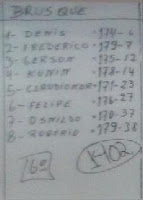 BRUSQUE
1- DENIS - 174-6
2- FREDERICO - 179-7
3- GERSON - 175-12
4- KUNIM - 178-14
5- CLAUDIOMOR - 171-23
6- FELIPE - 176-27
7- OSNILDO - 170-37
8- ROGERIO - 179-38
60
1402